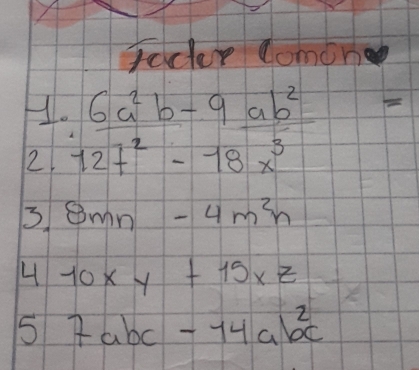 Factor Comón
1. 6a²b - 9 ab² =
2. 12t² - 18x³
3. 8mn - 4m²n
4 10xy + 15xz
5 7abc - 14ab²c